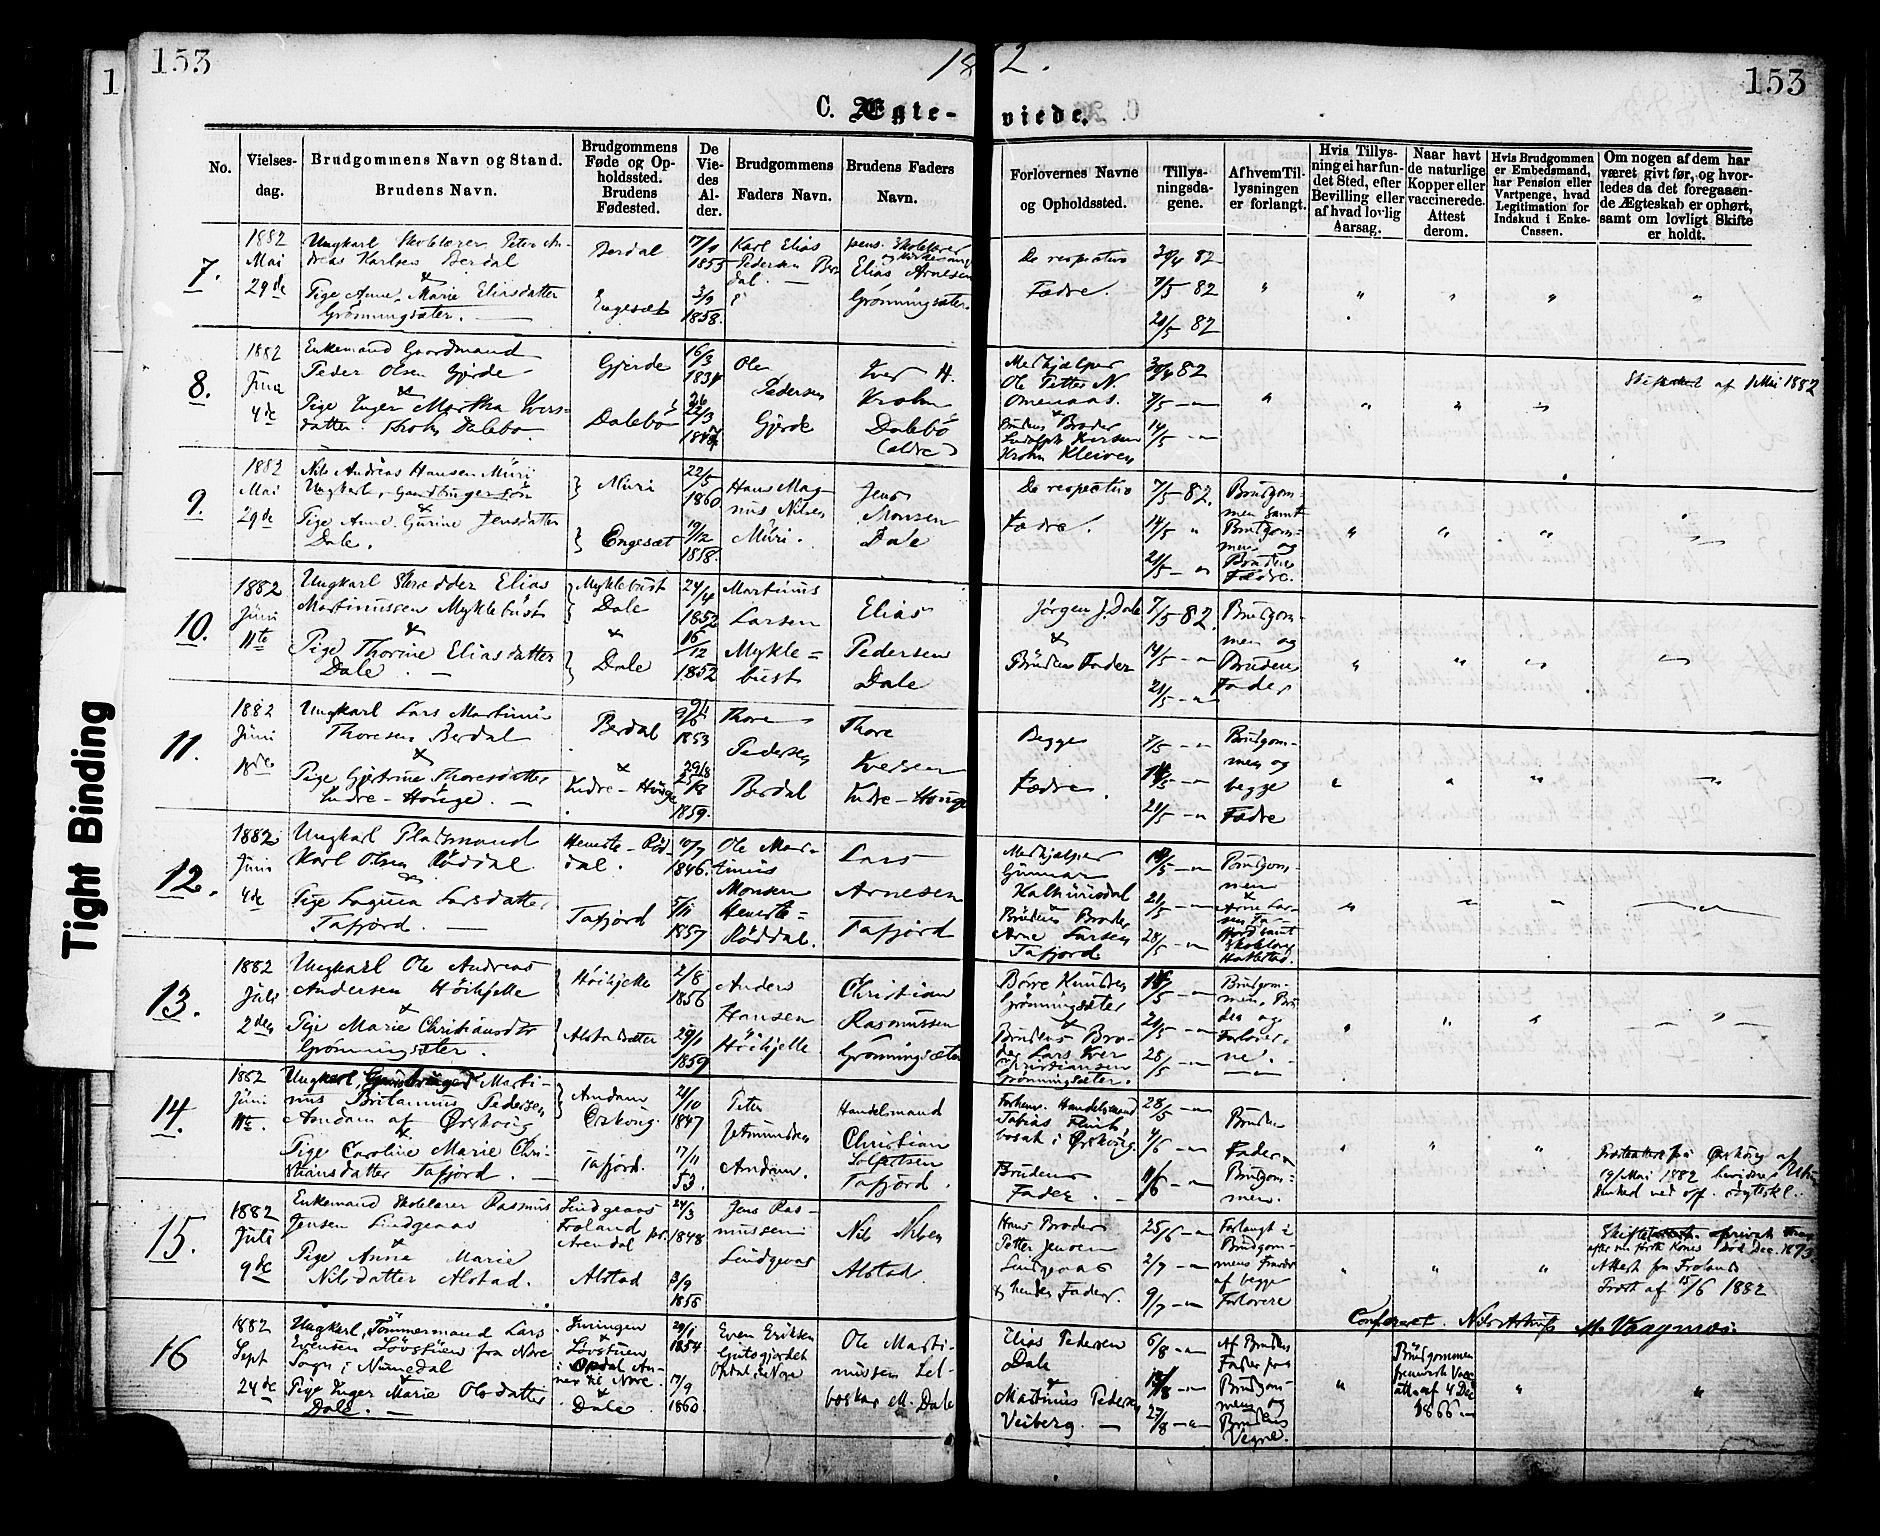 153
1
18 2.
153
C. Ægte-viede.
No.
Vielses-
dag.
Brudgommens Navn og Stand.
Brudens Navn.
Brudgommens
Føde og Op-
holdssted.
Brudens
Fødested.
De
Vie-
des
Al-
der.
Brudgommens
Faders Navn.
Brudens Faders
Navn.
Forlovernes Navne
og Opholdssted.
Tillys-
ningsda-
gene.
Af hvem Til-
lysningen
er forlangt.
Hvis Tillys-
ning ei har fun-
det Sted, efter
Bevilling eller
af hvad lovlig
Aarsag.
Naar havt
de naturlige
Kopper eller
vaccinerede.
Attest
derom.
Hvis Brudgommen
er Embedsmand,
har Pension eller
Vartpenge, hvad
Legitimation for
Indskud i Enke-
Cassen.
Om nogen af dem har
været givt før, og hvor-
ledes da det foregaaen-
de Ægteskab er ophørt,
samt om lovligt Skifte
er holdt.
7.
1882
Mai
29de
Ungkarl Skolelærer Peter An-
dreas Karlsen Berdal
&
Pige Anne Marie Eliasdatter
Grønningsæter.
Berdal
Engesæt
1855
3/9
1858.
Karl Elias
Pedersen Ber-
dal.
pens. Skolelærer
Elias Arnesen
Grønningsæter.
De respective
Fædre.
30/4 82
7/5 82
21/5 82
8.
1882
Juni
4de
Enkemand Gaardmand
Peder Olsen Gjerde
&
Pige Inger Martha Ivers-
datter Krohn Dalebø.
Gjerde
Dalebø
16/3
1834
Ole
Pedersen
Gjerde
Iver H.
Krohn
Dalebø
(ældre)
Medhjælper
Ole Petter N.
Omenaas.
&
Brudens Broder
Ludolph Iversen
Krohn Kleiven
30/4 82
7/5
14/5
af 1 Mai 1882
9.
1882
Mai
29de
Nils Andreas Hansen Muri
Ungkarl,
&
Pige Anne Gurine Jensdatter
Dale.
Muri
Engesæt
22/5
1860
19/12
1858.
Hans Mag-
nus Nilsen
Muri.
Jens
Monsen
Dale
De respective
Fædre.
7/5 82.
14/5 "
21/5
Brudgom-
men samt
Brudgom-
mens og
Brudens
Fædre.
10.
1882
Juni
11te
Ungkarl Skrædder Elias
Martinussen Myklebust
&
Pige Thorine Eliasdatter
Dale.
Myklebust
Dale
&
Dale
24/4
1852
15/12
1852
Martinus
Larsen
Mykle-
bust
Elias
Pedersen
Dale
Jørgen J. Dale
&
Brudens Fader
7/5 82.
14/5
21/5
Brudgom-
men og
Brudens
Fader
11.
1882
Juni
18de
Ungkarl Lars Martinus
Thoresen Berdal
&
Pige Gjertrine Thoresdatter
Indre-Houge.
Berdal
&
Indre-Houge
1853
1859.
Thore
Pedersen
Berdal
Thore
Iversen
Indre-Houge
Begge
Fædre.
7/5
14/5
21/5
Brudgom-
men og
begge
Fædre
12.
1882
Juni
4de
Ungkarl Pladsmand
Karl Olsen Røddal
Pige Lagina Larsdatter
Tafjord.
Heneste-Rød-
dal.
Tafjord
10/7
1846.
5/11
1857
Ole Mar-
tinus
Monsen
Heneste-
Røddal.
Lars
Arnesen
Tafjord
Medhjælper
Gunnar
&
Brudens Broder
Arne Larsen
Tafjord
21/5
28/5
Brudgom-
men
&
Arne Lar-
sen Ta-
fjord samt
13.
1882
Juli
2den
Ungkarl Ole Andreas
Andersen Høihjelle
&
Pige Marie Christiansdtr
Grønningsæter.
Høihjelle
2/8
1856
1859
Anders
Hansen
Høihjelle
Christian
Rasmussen
Grønningsæter
Børre Knudsen
Grønningsæter
&
Brudens Bro-
der Lars Iver
Christiansen
Grønningsæter.
21/5
28/5
Brudgom-
men, Bru-
den og
Forlover-
ne.
14.
1882
Juni
11te.
Ungkarl, Marti-
nus Britanius Pedersen
Amdam af Ørskoug
&
Pige Caroline Marie Chri-
stiansdatter Tafjord.
Amdam
Ørskoug.
Tafjord.
21/10
1847
17/11
53.
Peter
Jetmundsen
Amdam.
Handelsmand
Christian
Tafjord.
Forhenv. Handelsmand
Tobias Flinh
bosat i Ørskoug.
Brudens
Fader.
28/5
4/6
11/6
Brudens
Fader
Brudgom-
men.
Ørskoug af
19/Mai 1882
15.
1882
Juli
9de
Enkemand Skolelærer Rasmus
Jensen Lindgeaas
&
Pige Anne Marie
Nilsdatter Alstad.
Lindgeaas
Froland
Arendal
Alstad
24/3
1848
3/9
1856
Jens Ras-
mussen
Lindgeaas
Nils Nilsen
Alstad
Hans Broder
Petter Jensen
Lindgeaas
& hendes Fader.
25/6
2/7
9/7
Forlangt i
Brudgom-
mens
af begge
Forlovere
død Dec. 1873.
Attest fra Frolands
Præst af 15/6 1882
Confereret. M. Vaagnæs.
16
1882
Sept
24de
Ungkarl, Tømmermand Lars
Evensen Løvstuen fra Nore
Sogn i Numedal
&
Pige Inger Marie Olsdatter
Dale.
Løvstuen
i Opdal An-
nex til Nore.
&
Dale
29/1
1854
17/9
1860
Even Eriksen
Opdal i Nore
Ole Marti-
nussen Sel-
boskar M. Dale
Elias Pedersen
Dale
&
Martinus Pedersen
Veiberg.
6/8
27/8
Af Brudens
Fader paa
Brudgom-
mens og
Brudens
Vegne.
Brudgommen
fremviste Vacc
att. af 4 Dec
1866
Tight Binding